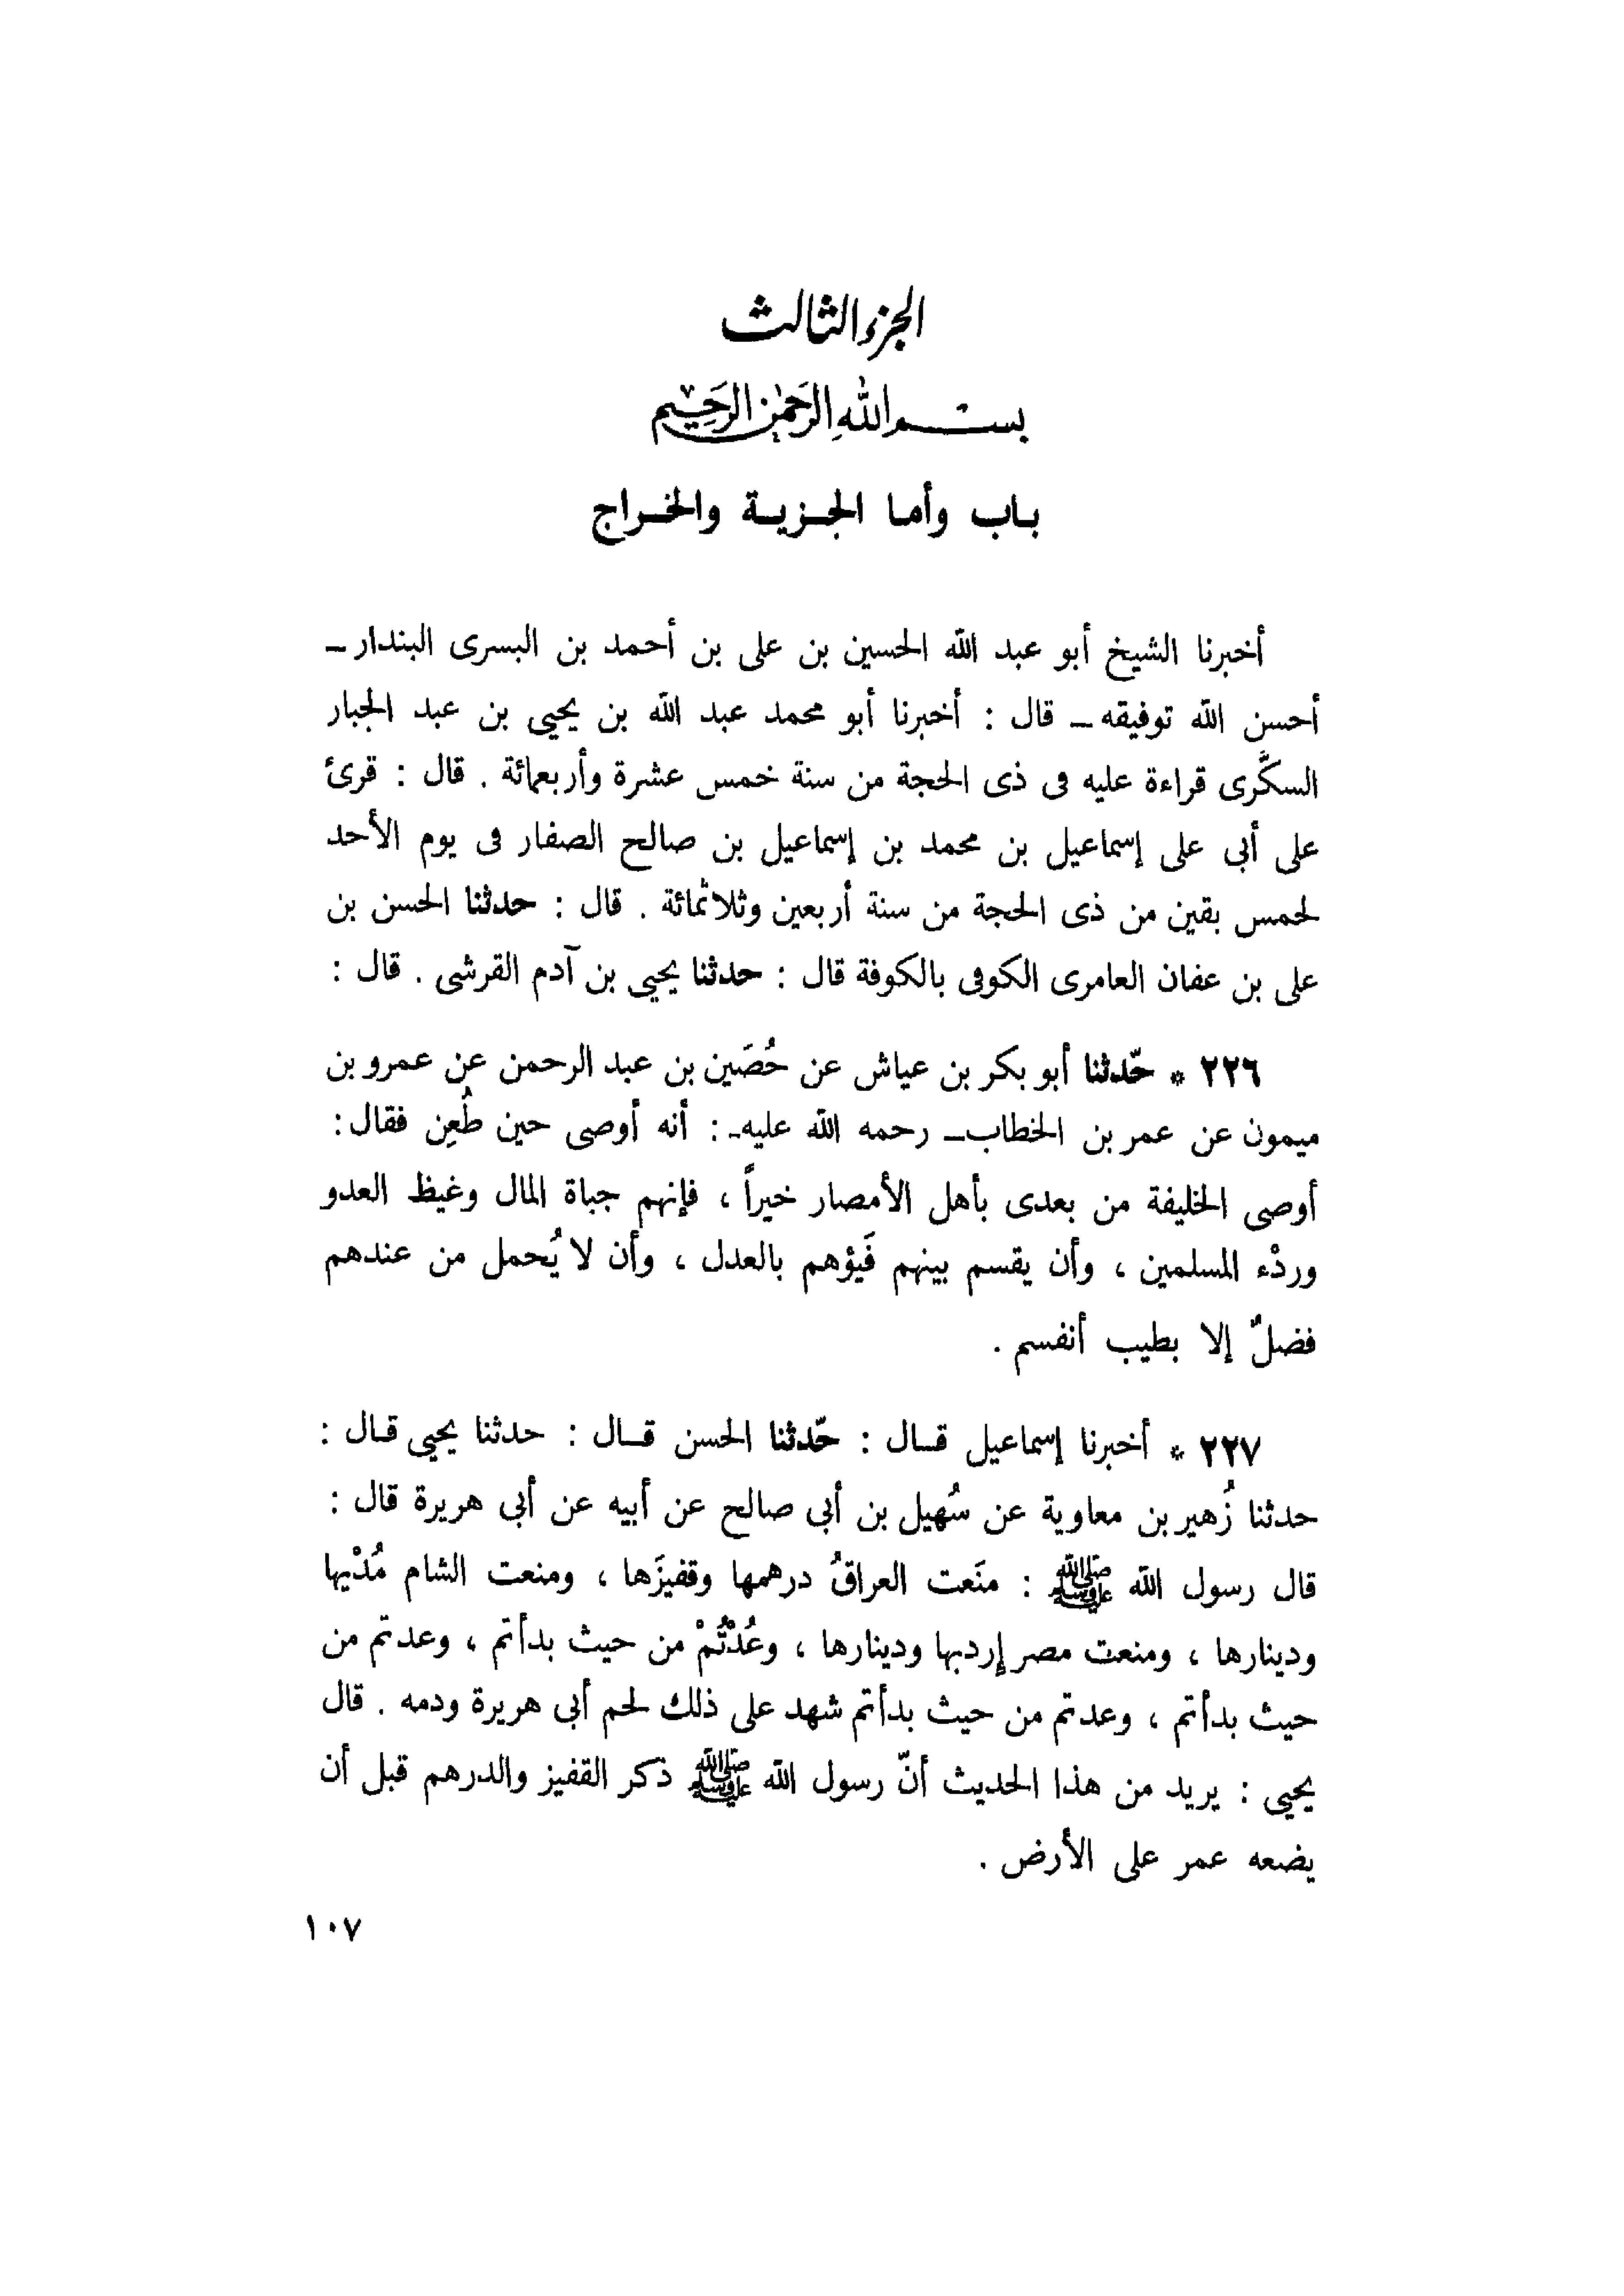 الجزء الثالث
بسم الله الرحمن الرحيم
باب وأما الجزية والخراج
أخبرنا الشيخ أبو عبد الله الحسين بن على بن أحمد بن البسرى البندار –
أحسن الله توفيقه – قال : أخبرنا أبو محمد عبد الله بن يحيى بن عبد الجبار
السكَّرى قراءة عليه فى ذى الحجة من سنة خمس عشرة وأربعمائة . قال : قرئ
على أبى على إسماعيل بن محمد بن إسماعيل بن صالح الصفار فى يوم الأحد
لخمس بقين من ذى الحجة من سنة أربعين وثلاثمائة . قال : حدثنا الحسن بن
على بن عفان العامرى الكوفى بالكوفة قال : حدثنا يحيى بن آدم القرشى . قال :
٢٢٦ * حّدثنا أبو بكر بن عياش عن حُصَين بن عبد الرحمن عن عمرو بن
ميمون عن عمر بن الخطاب – رحمه الله عليه- : أنه أوصى حين طُعِن فقال :
أوصى الخليفة من بعدى بأهل الأمصار خيراً ، فإنهم جباة المال وغيظ العدو
وردْء المسلمين ، وأن يقسم بينهم فَيؤهم بالعدل ، وأن لا يُحمل من عندهم
فضلٌ إلا بطيب أنفسم .
٢٢٧ * أخبرنا إسماعيل قال : حّدثنا الحسن قال : حدثنا يحيى قال :
حدثنا زُهير بن معاوية عن سُهيل بن أبى صالح عن أبيه عن أبى هريرة قال :
قال رسول الله ﷺ : منَعت العراقُ درهمها وقفيزَها ، ومنعت الشام مُدْيها
ودينارها ، ومنعت مصر إردبها ودينارها ، وعُدْتُمْ من حيث بدأتم ، وعدتم من
حيث بدأتم ، وعدتم من حيث بدأتم شهد على ذلك لحم أبى هريرة ودمه . قال
يحيى : يريد من هذا الحديث أنّ رسول الله ﷺ ذكر القفيز والدرهم قبل أن
يضعه عمر على الأرض .
١٠٧